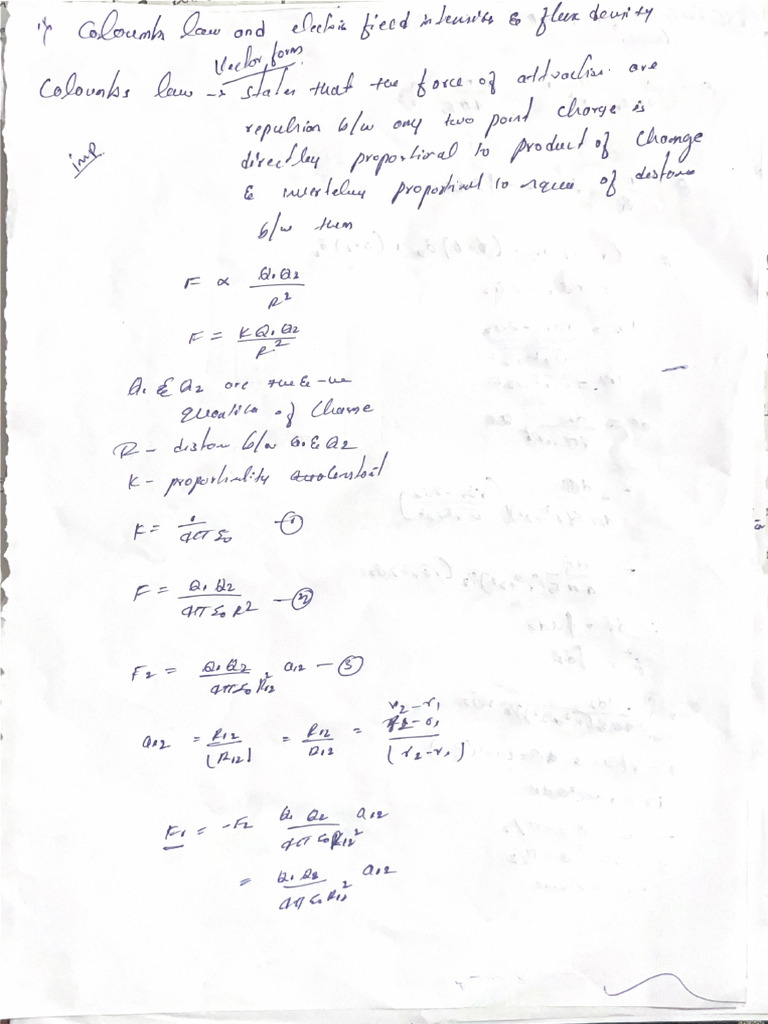 1) Coloumbs law and electric field intensity & flux density
Vector form
Coloumbs law -> states that the force of attraction are
imp
repulsion b/w any two point charge is
directley proportional to product of change
& proportional to of distance
b/w them
F ∝ Q1 Q2 / R²
F = K Q1 Q2 / R²
Q1 & Q2 are +ve & -ve
of Charge
R - distan b/w Q1 & Q2
K - proportinality constant
K = 1 / 4π ε0 - ①
F = Q1 Q2 / 4π ε0 R² - ②
F2 = Q1 Q2 / 4π ε0 R12² a12 - ③
a12 = R12 / |R12| = R12 / R12 = r2 - r1 / |r2 - r1|
F1 = -F2 Q1 Q2 / 4π ε0 R12² a12
= Q1 Q2 / 4π ε0 R12² a12